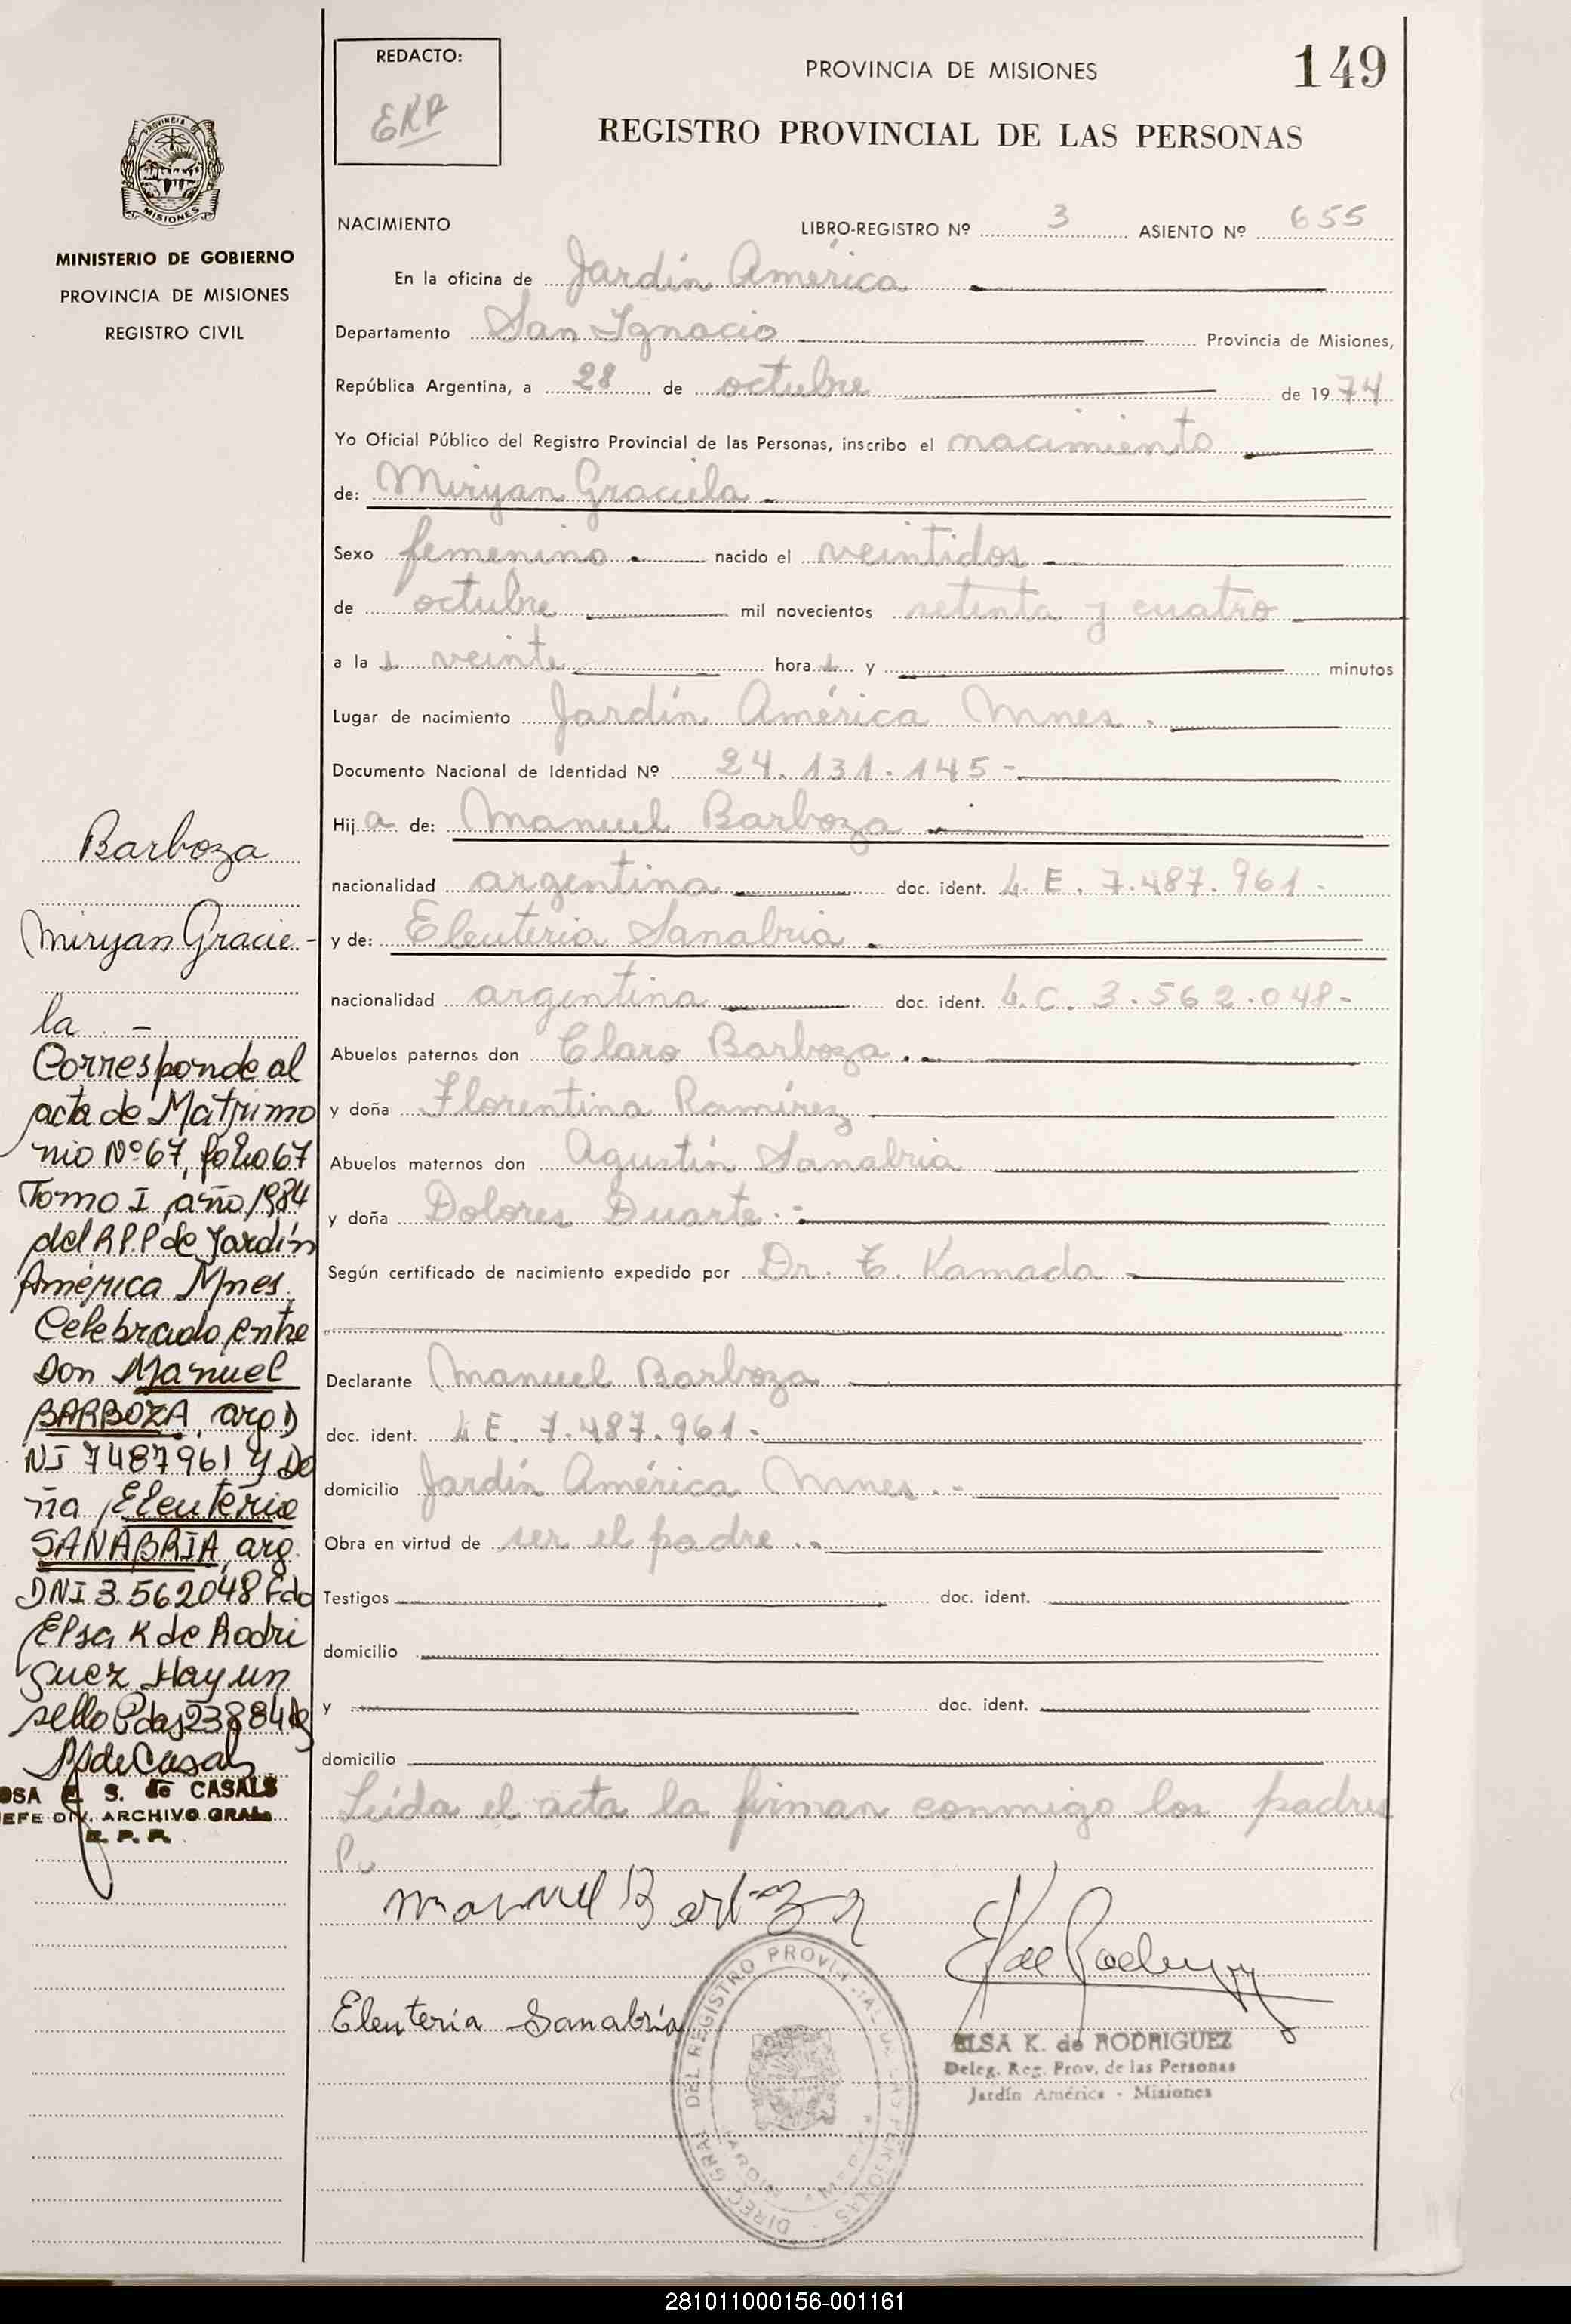 REDACTO:
EKR
PROVINCIA DE MISIONES
149
REGISTRO PROVINCIAL DE LAS PERSONAS
PROVINCIA DE
MISIONES
MINISTERIO DE GOBIERNO
PROVINCIA DE MISIONES
REGISTRO CIVIL
NACIMIENTO LIBRO-REGISTRO Nº 3 ASIENTO Nº 655
En la oficina de Jardín América
Departamento San Ignacio Provincia de Misiones,
República Argentina, a 28 de octubre de 1974
Yo Oficial Público del Registro Provincial de las Personas, inscribo el nacimiento
de: Miryan Graciela
Sexo femenino nacido el veintidos
de octubre mil novecientos setenta y cuatro
a la s veinte hora s y minutos
Lugar de nacimiento Jardín América Mnes.
Documento Nacional de Identidad Nº 24.131.145-
Hija de: Manuel Barboza
nacionalidad argentina doc. ident. L.E. 7.487.961.
y de: Eleuteria Sanabria
nacionalidad argentina doc. ident. L.C. 3.562.048-
Abuelos paternos don Claro Barboza
y doña Florentina Ramírez
Abuelos maternos don Agustín Sanabria
y doña Dolores Duarte.
Según certificado de nacimiento expedido por Dr. T. Kamada
Declarante Manuel Barboza
doc. ident. L E. 7.487.961.
domicilio Jardín América Mnes.
Obra en virtud de ser el padre.
Testigos doc. ident.
domicilio
y doc. ident.
domicilio
Leída el acta la firman conmigo los padres
Barboza
Miryan Gracie-
la.-
Corresponde al
acta de Matrimo
nio Nº 67, folio 67
Tomo I año 1984
del R.P.P de Jardín
América Mnes.
Celebrado entre
Don Manuel
BARBOZA, arg. D
NI 7487961 y Do
ña Eleuteria
SANABRIA, arg.
DNI 3.562048 Fdo
Elsa K de Rodri
guez Hay un
sello Pdas 23884
R de Casals
OSA E. S. de CASALS
EFE DIV. ARCHIVO GRAL.
R. P. P.
Manuel Barboza
E K de Rodriguez
Eleuteria Sanabria
ELSA K. de RODRIGUEZ
Deleg. Reg. Prov. de las Personas
Jardín América - Misiones
DIREC. GRAL. DEL REGISTRO PROVINCIAL DE LAS PERSONAS
281011000156-001161